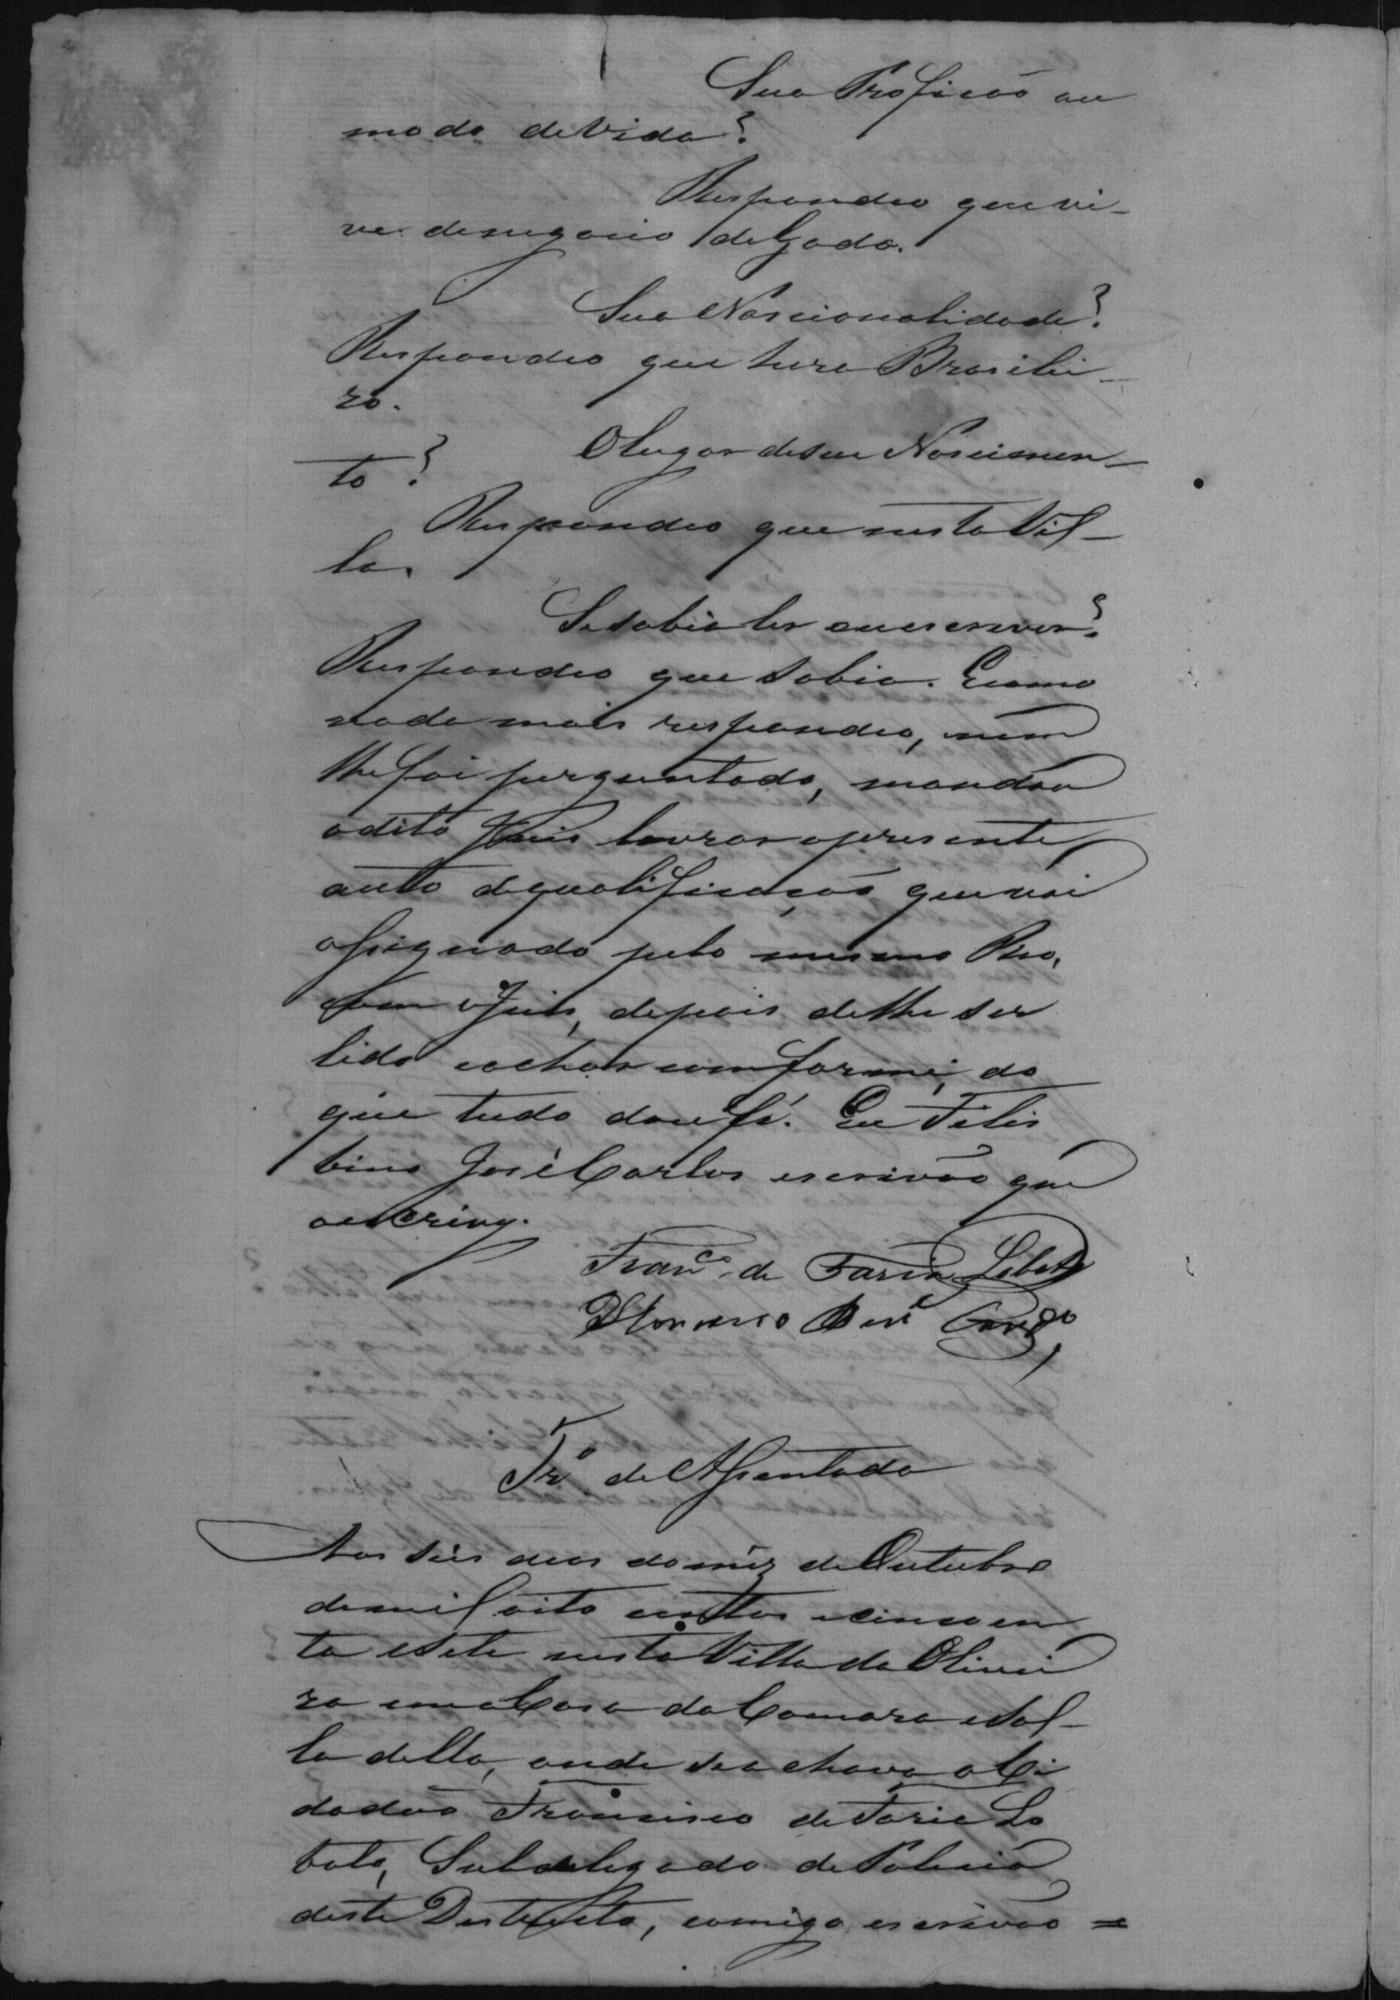 Sua Proficaõ ou
modo de Vida?
Respondeo que vi-
ve denegocio deGado.
Sua Nascionalidade?
Respondeo que hera Brasilei-
ro.
Olugar deseu Nascimen-
to?
Respondeo que nesta Vil-
la.
Sesabia ler ouescrever?
Respondeo que sabia. Ecomo
nada mais respondeo, nem
lhefoi perguntado, mandou
odito Juis lavrar opresente
auto dequalificaçaõ que vai
assignado pelo mesmo Reo,
com oJuis, depois delhe ser
lido eachar comforme, do
que tudo doufé. Eu Felis
bino José Carlos escrivaõ que
oescrevy.
Franco. de Faria Lobato
Bene Cardo
Tro. de Assentada
Aos seis dias domez deOutubro
demil oito centos ecincoen
ta esete nesta Villa da Olivei
ra emaCasa da Camara eSal-
la della, onde seachava oCi
dadaõ Francisco deFaria Lo
bato, Subdelegado de Policia
deste Destricto, comigo escrivaõ =